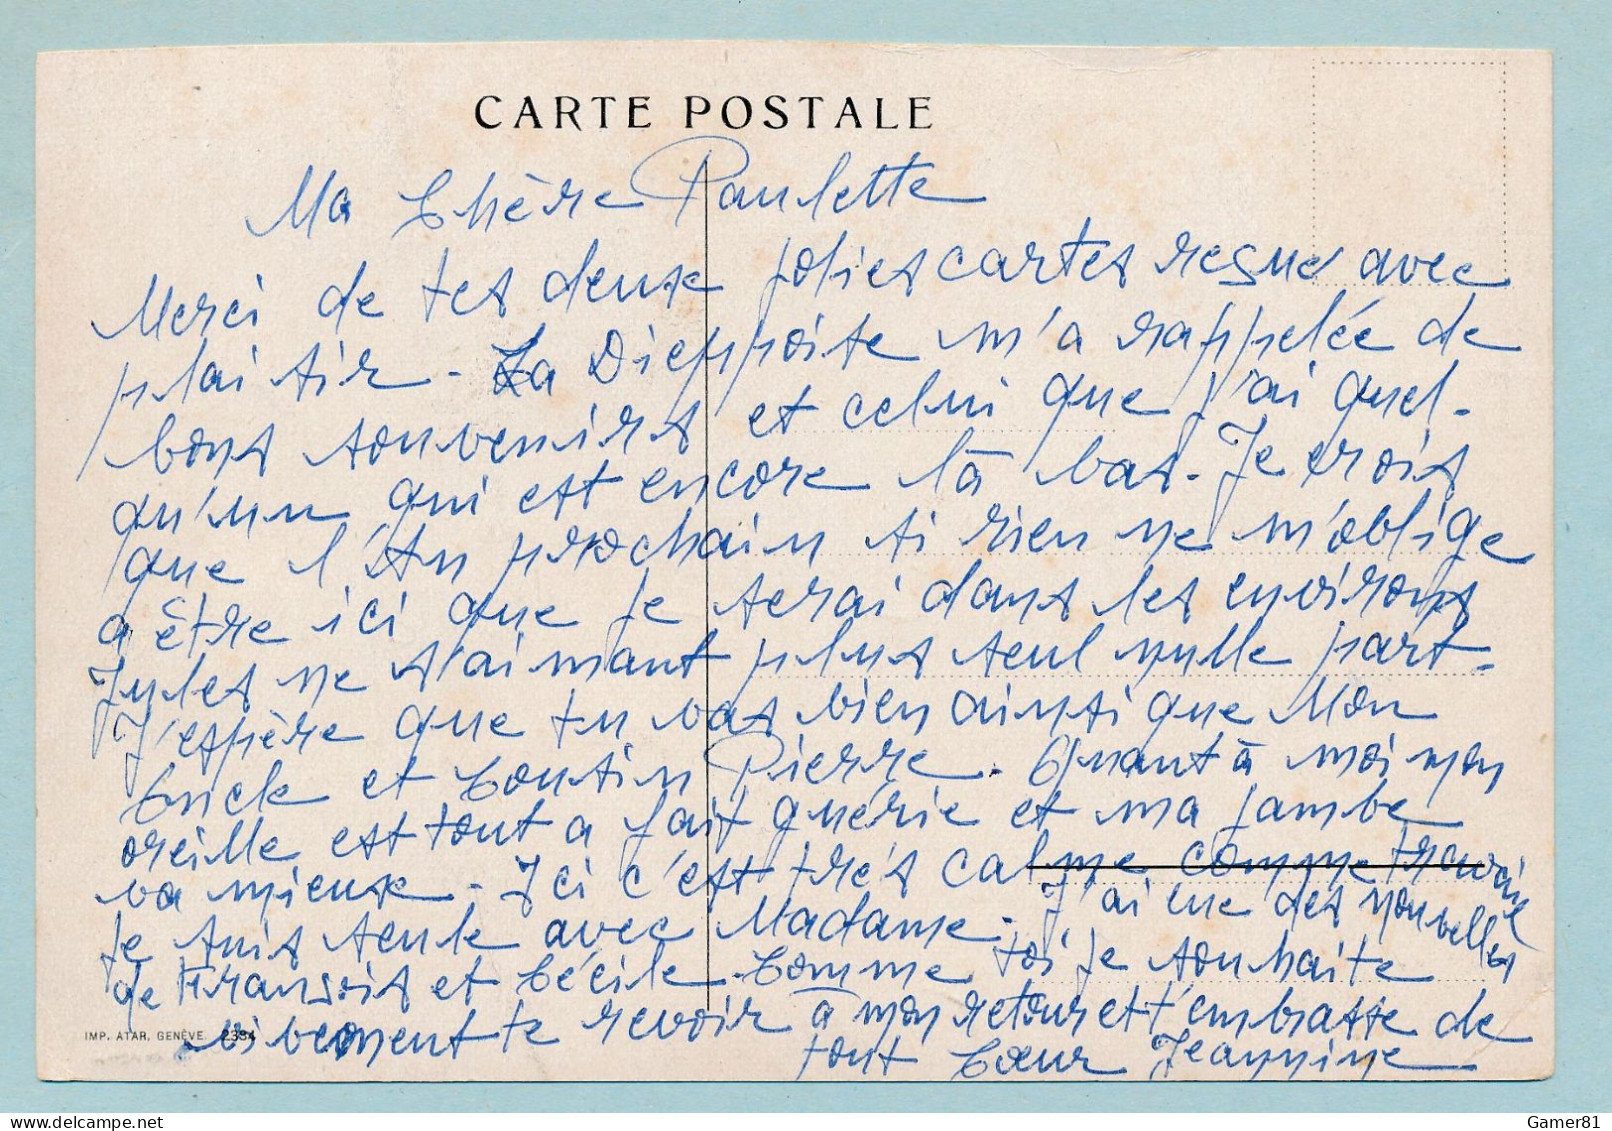 CARTE POSTALE
Ma Chère Paulette
Merci de tes deux jolies cartes resues avec
plaisir - La Dieppoise m'a rappelée de
bons souvenirs et celui que j'ai quel-
qu'un qui est encore là bas - Je crois
que l'An prochain si rien ne m'oblige
a être ici que je serai dans les environs
Jules ne s'aimant plus seul nulle part -
J'espère que tu vas bien ainsi que Mon
Oncle et Cousin Pierre. Quant à moi mon
oreille est tout a fait guérie et ma jambe
va mieux - Ici c'est très calme comme travail
je suis seule avec Madame - J'ai eue des nouvelles
de Fransois et Cécile - Comme toi je souhaite
vivement te revoir à mon retour et t'embrasse de
tout Cœur Jeannine
IMP. ATAR, GENÈVE 2394
Gamer81